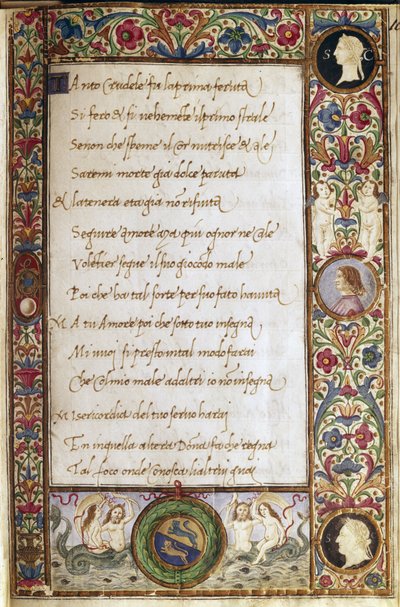 S C
TAnto Crudele fu laprima feruta
Si fero & si uehemete ilprimo strale
Senon che speme il cor nutrisce & ale
Saremi morte gia dolce paruta
& latenera eta gia nō rifiuta
Seguire amore aza piu ognor ne cale
Volētier segue il suo giocōdo male
Poi che ha tal sorte per suo fato hauuta
MA tu Amore poi che sotto tuo insegna
Mi uuoi si presto intal modo farai
Che col mio male adaltri io nō insegna
Misericordia del tuo seruo harai
En inquella altera Dōna fa che regna
Tal foco onde conosca lialtrui guai
S